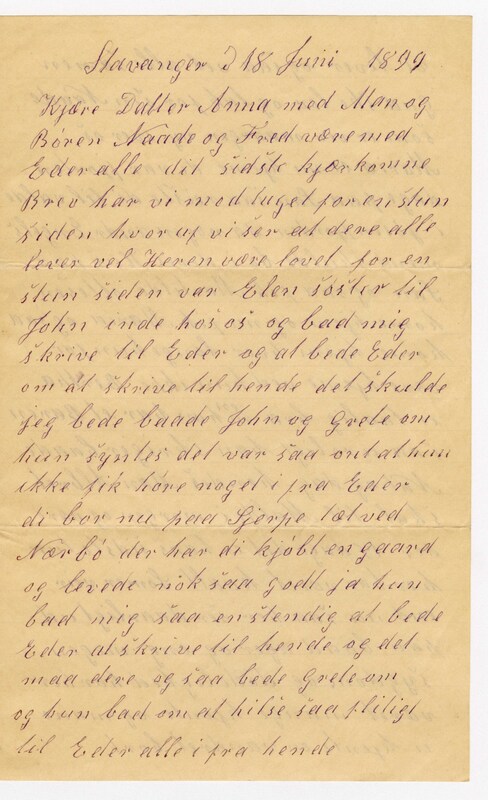 Stavanger d 18 Juni 1899
Kjære Datter Anna med Man og
Børen Naade og Fred være med
Eder alle dit sidste kjærkomne
Brev har vi modtaget for en stun
siden hvor af vi ser at dere alle
lever vel Heren være lovet for en
stun siden var Elen søster til
John inde hos os og bad mig
skrive til Eder og at bede Eder
om at skrive til hende det skulde
jeg bede baade John og Grete om
hun syntes det var saa ont at hun
ikke fik høre noget i fra Eder
di bor nu paa Sjerpe læt ved
Nærbø der har di kjøbt en gaard
og levede nok saa godt ja hun
bad mig saa enstendig at bede
Eder at skrive til hende og det
maa dere og saa bede Grete om
og hun bad om at hilse saa flitigt
til Eder alle i fra hende